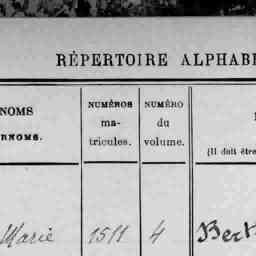 RÉPERTOIRE ALPHAB
NOMS
RNOMS.
NUMÉROS
ma-
tricules.
NUMÉRO
du
volume.
(Il doit être
Marie 1511 4 Bert